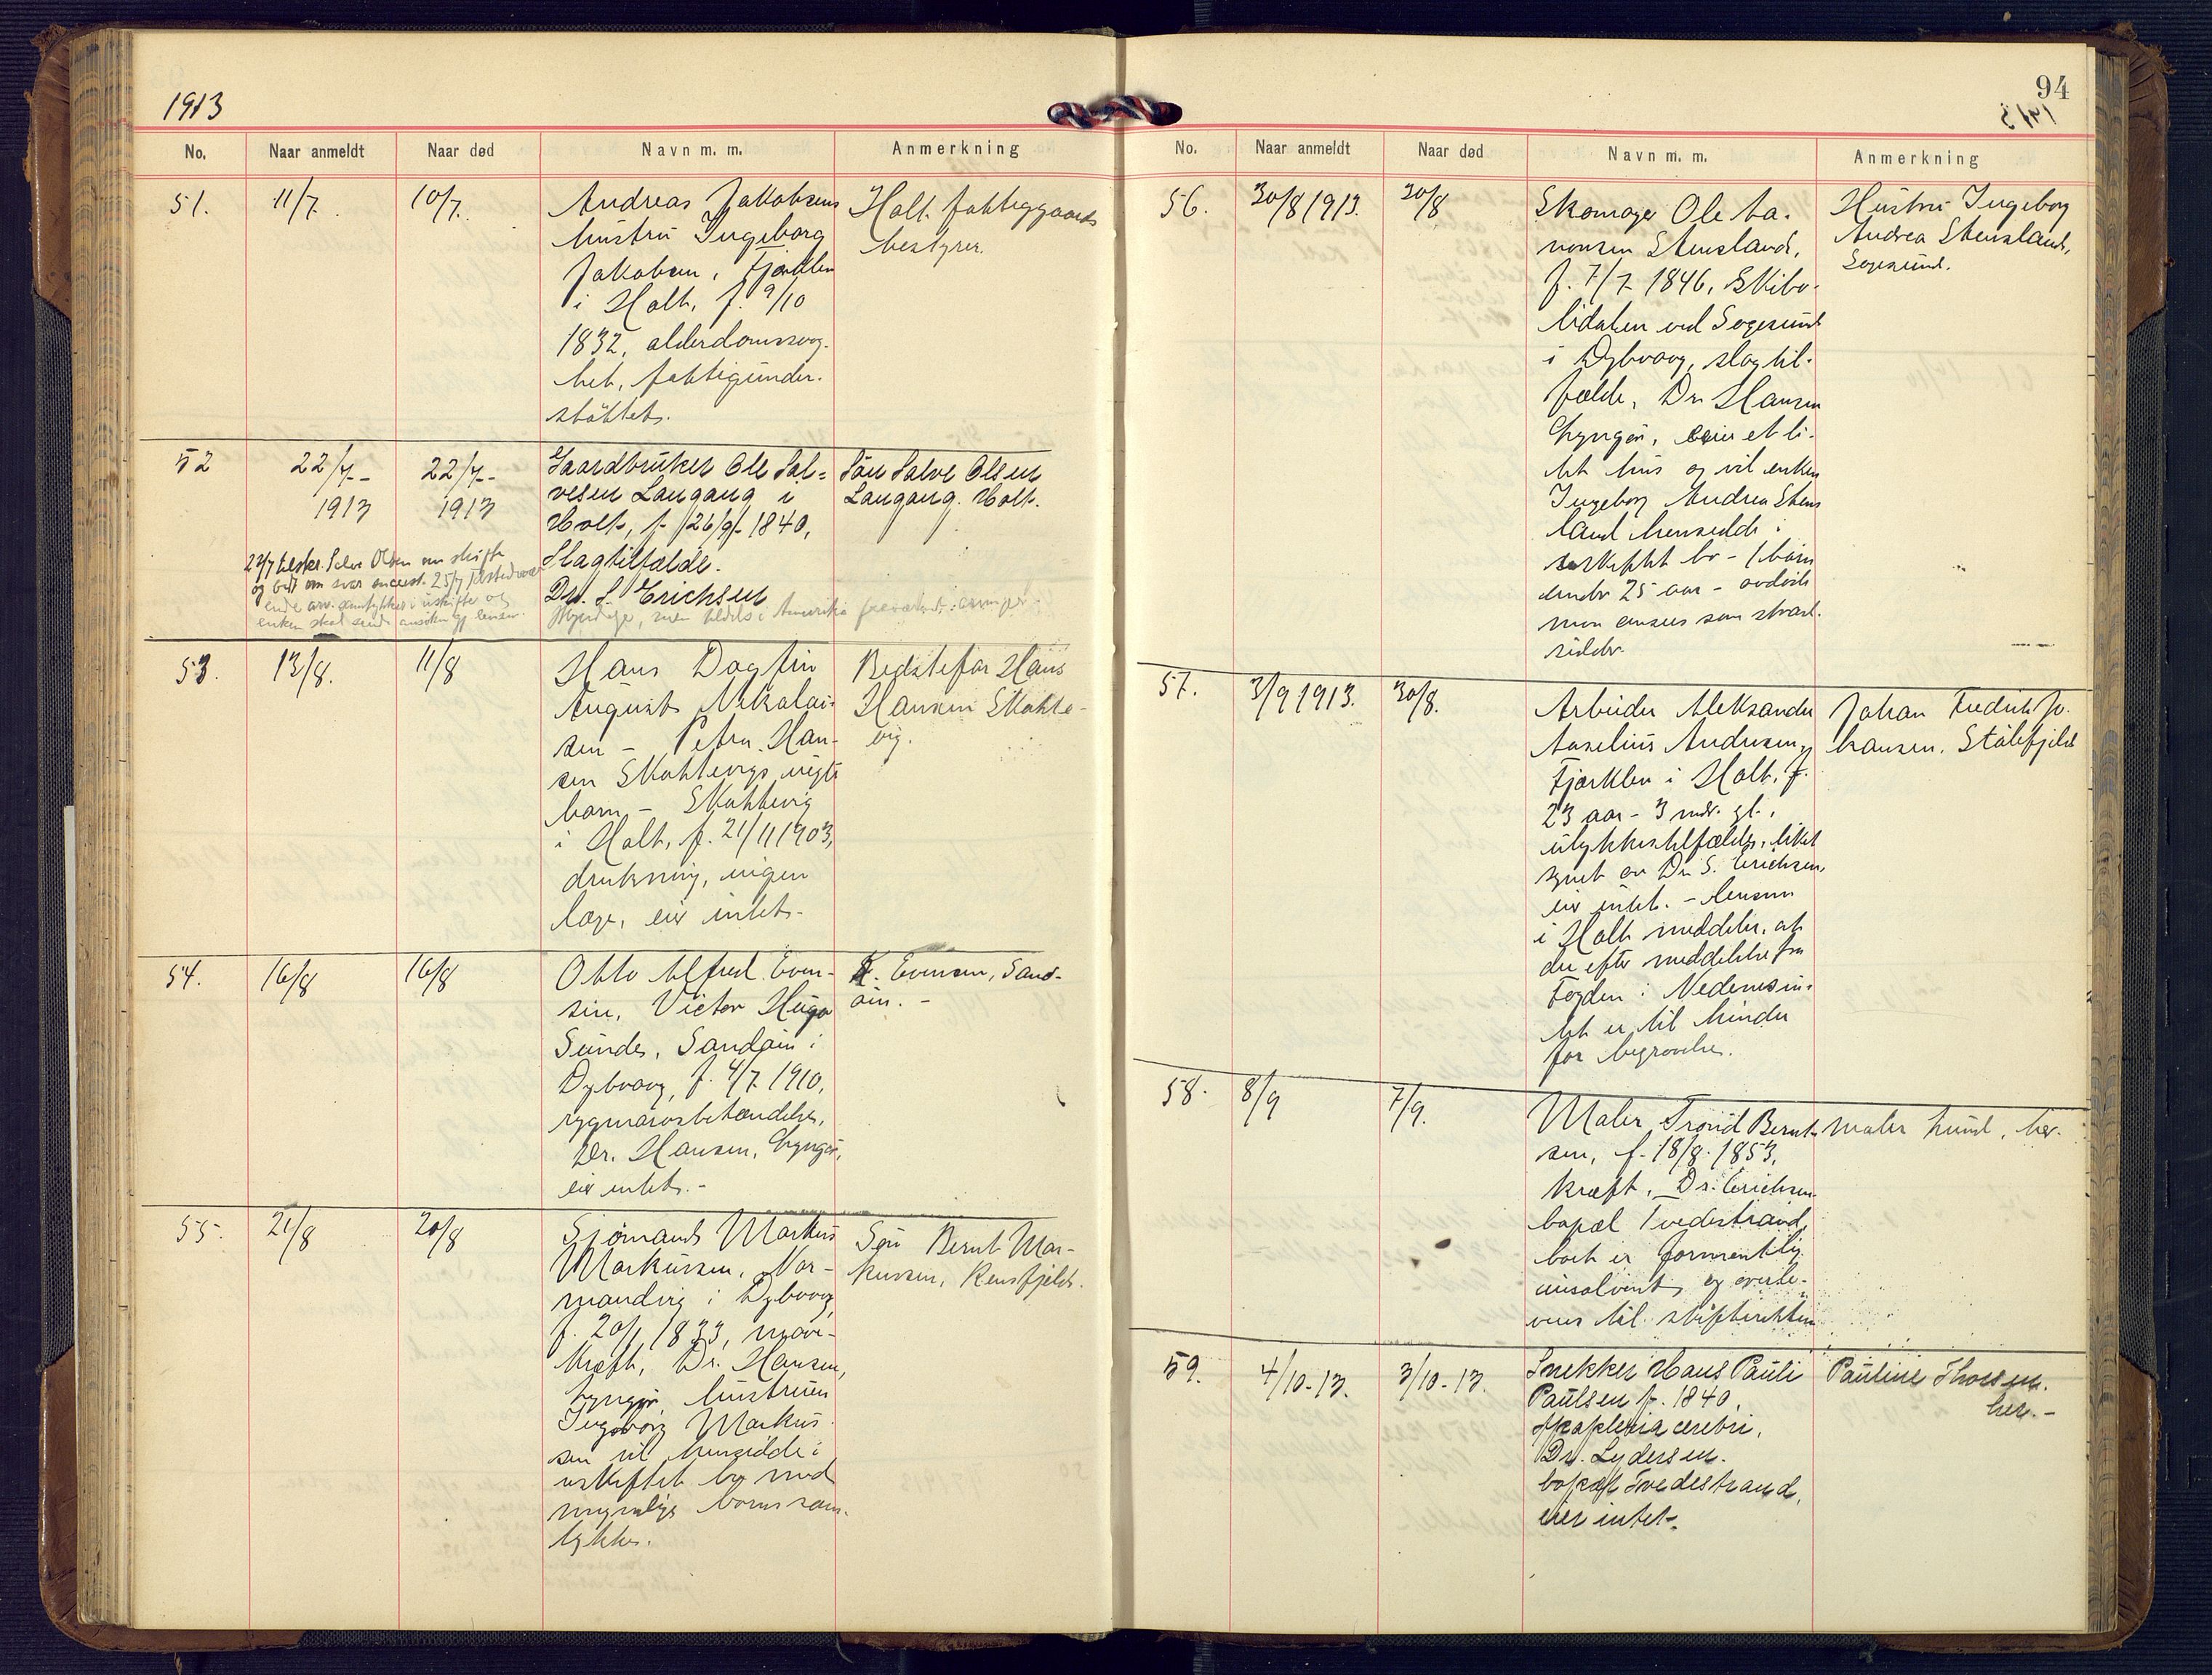 1913
No. Naar anmeldt Naar død Navn m. m. Anmerkning
51. 11/7. 10/7.
Andreas Jakobsens
hustru Ingeborg
Jakobsen, Fjærklen
i Holt, f. 9/10
1832, alderdomssvag-
het, fattigunder-
støttet.
Holt fattiggaards
bestyrer.
52 22/7- 22/7-
1913 1913
Gaardbruker Ole Sal-
vesen Langang i
Holt, f. 26/9- 1840,
Slagtilfælde.
Dr. S. Erichsen
Søn Salve Olsen
Langang. Holt.
22/7 tilskr. Salve Olsen om skifte
og bedt om svar
53. 13/8. 11/8
Hans Dagfin
August Nikolai-
sen - Petra Han-
sen Skottevigs uegte
barn - Skottevig
i Holt, f. 21/11 1903,
drukning, ingen
læge, eier intet.
Bedstefar Hans
Hansen Skotte-
vig.
54. 16/8 16/8
Otto Alfred Even-
sen, Victor Hugo
Sundes, Sandøen i
Dybvaag, f. 4/7 1910,
rygmarvsbetændelse,
Dr. Hansen, Lyngør,
eier intet. -
K. Evensen, Sand-
øen. -
55. 21/8 20/8
Sjømand Markus
Markussen, Nor-
mandvig i Dybvaag,
f. 20/1 1833, mave-
kræft, Dr. Hansen,
Lyngør, hustruen
Ingeborg Markus-
sen vil hensidde i
uskiftet bo med
myndige børns sam-
tykke.
Søn Bernt Mar-
kussen, Rensfjeld.
94
No. Naar anmeldt Naar død Navn m. m. Anmerkning
56. 30/8 1913. 30/8
Skomager Ole Aa-
nonsen Stensland,
f. 7/7 1846, Skibs-
lidalen ved Sagesund
i Dybvaag, slagtil-
fælde, Dr. Hansen
Lyngør, eier et li-
tet hus og vil enken
Ingeborg Andrea Stens
land hensidde i
uskiftet bo - 1 barn
under 25 aar - avdøde
man ansees som straks
Hustru Ingeborg
Andrea Stensland,
Sagesund.
57. 3/9 1913. 30/8.
Arbeider Aleksander
Aaselius Andersen,
Fjærklen i Holt, f.
23 aar - 3 mdr. gl.,
ulykkestilfælde, liket
synet av Dr. S. Erichsen,
eier intet. - Lensm
i Holt meddeler, at
der efter meddelelse fra
Fogden i Nedenes in-
tet er til hinder
for begravelse.
Johan Fredrik Jo-
hansen, Stølefjeld
58. 8/9 7/9.
Maler Trond Bernt-
sen, f. 18/8. 1853,
kræft, Dr. Erichsen
bopæl Tvedestrand,
boet er formentlig
insolvent og overle-
veres til skifteretten
Maler Lund, her.
59. 4/10-13. 3/10-13.
Snekker Hans Pauli
Paulsen f. 1840,
Apoplexia cerebri,
Dr. Lydersen.
bopæl Tvedestrand,
eier intet.
Pauline Thorsen.
her. -